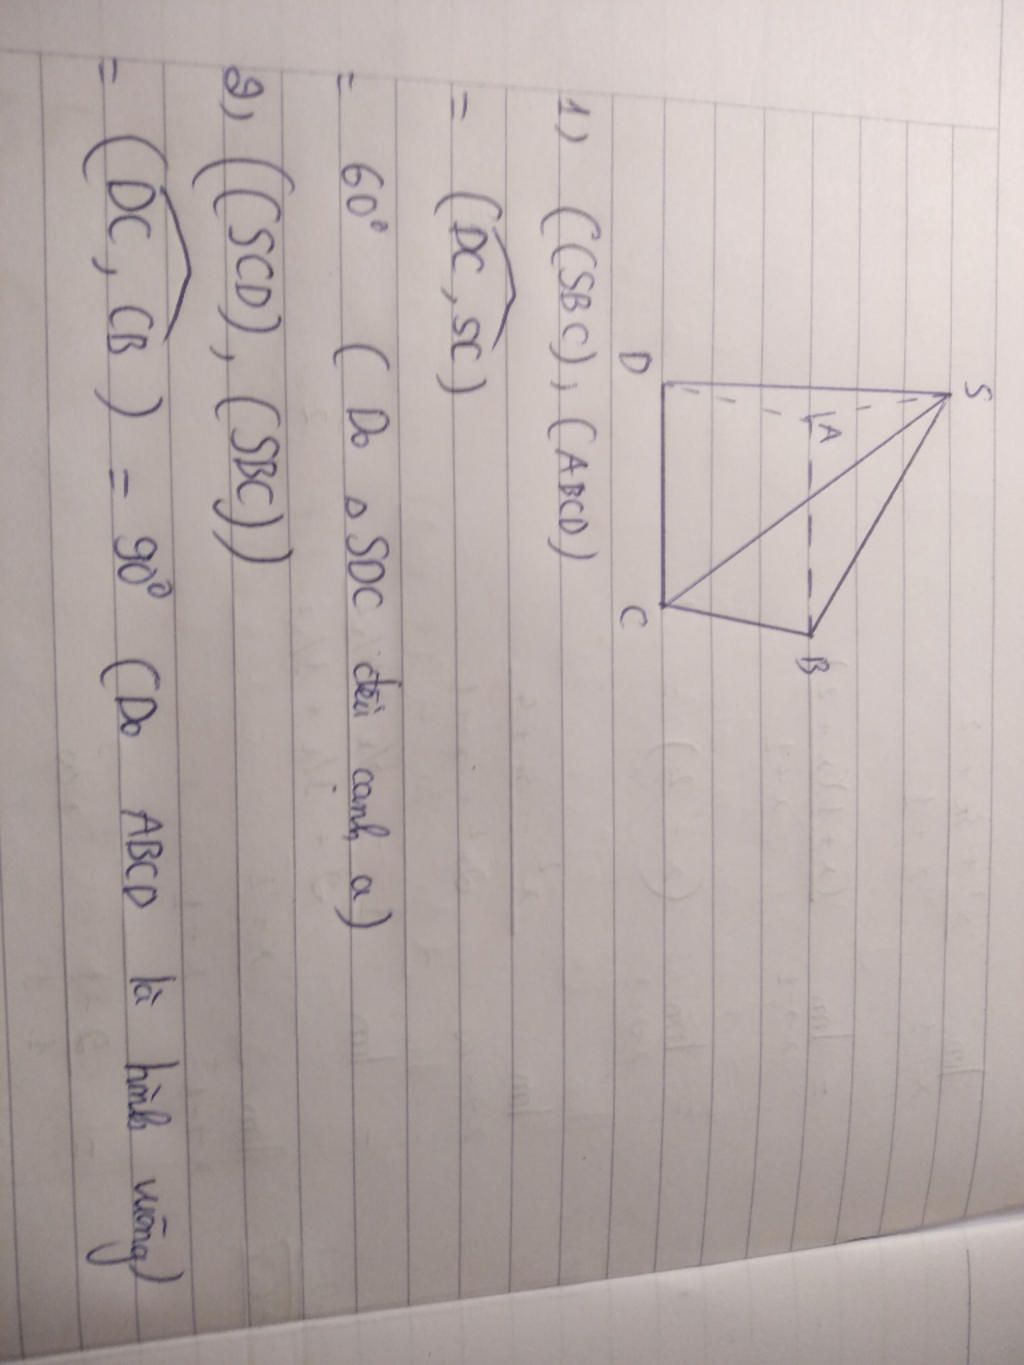 S
A
B
D
C
1) ((SBC), (ABCD)
= (DC, SC)
= 60° (Do Δ SDC đều cạnh a)
2) ((SCD), (SBC))
= (DC, CB) = 90° (Do ABCD là hình vuông)